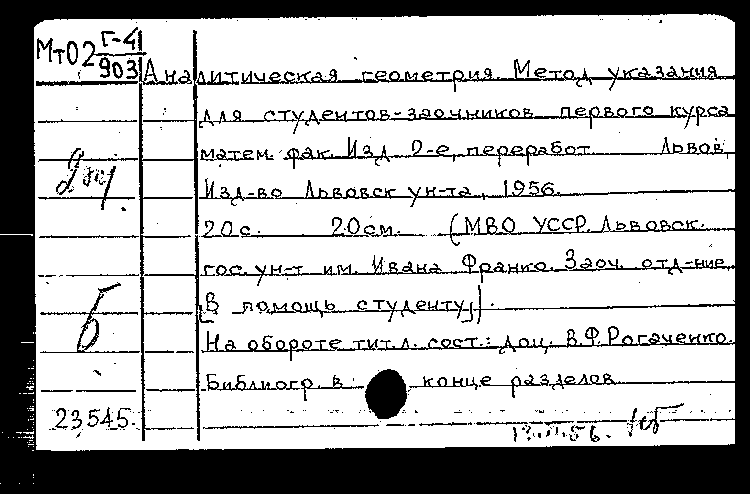 Мт02 Г-4/903
Аналитическая геометрия. Метод указания
для студентов-заочников первого курса
матем. фак. Изд. 2-е, переработ. Львов,
Изд-во Львовск. ун-та, 1956.
20с. 20см. (МВО УССР. Львовск.
гос. ун-т им. Ивана Франко. Заоч. отд-ние.
[В помощь студенту]).
На обороте тит. л. сост.: доц. В.Ф. Рогаченко.
Библиогр. в конце разделов
Б
23545.